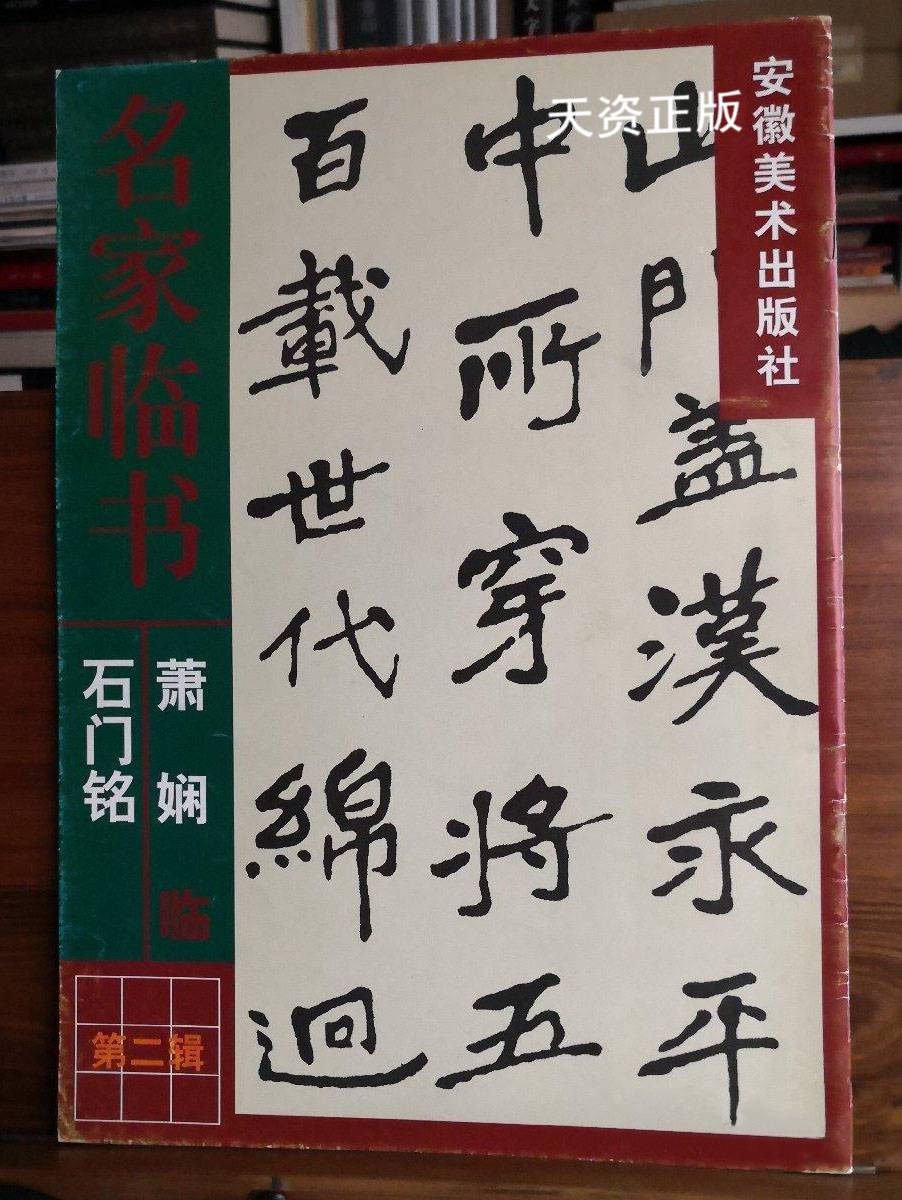 名家临书
萧娴 临
石门铭
第二辑
安徽美术出版社
天资正版
山門盖漢永平
中所穿將五
百載世代綿迥